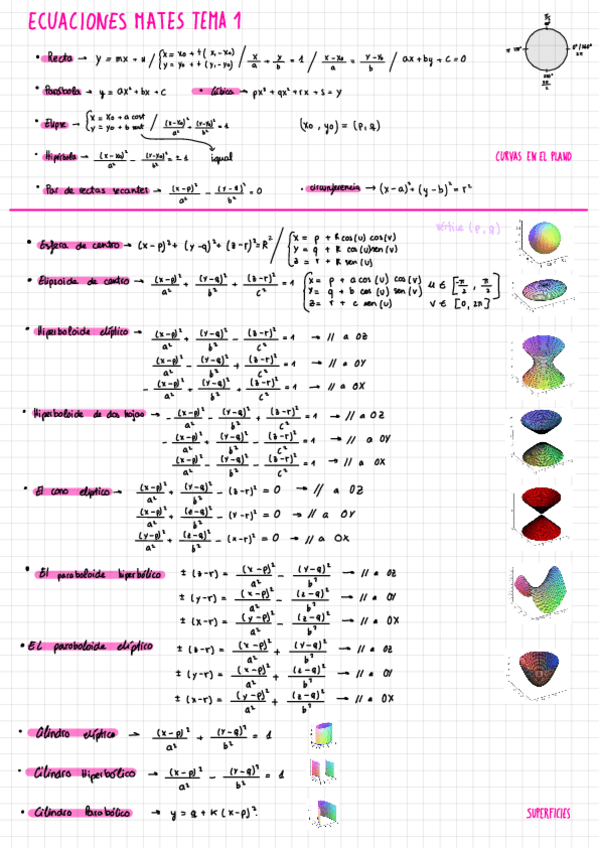 ECUACIONES MATES TEMA 1
• Recta → y = mx + n / {x = x₀ + t(x₁-x₀) y = y₀ + t(y₁-y₀) / x/a + y/b = 1 / (x-x₀)/a = (y-y₀)/b / ax + by + c = 0
• Parábola → y = ax² + bx + c • Cúbica → px³ + qx² + rx + s = y
• Elipse → {x = x₀ + a cost y = y₀ + b sent / (x-x₀)²/a² + (y-y₀)²/b² = 1 (x₀, y₀) = (p, q)
• Hipérbola → (x-x₀)²/a² - (y-y₀)²/b² = ±1 igual
CURVAS EN EL PLANO
• Par de rectas secantes → (x-p)²/a² - (y-q)²/b² = 0 • circunferencia → (x-a)² + (y-b)² = r²
vértice (p, q)
• Esfera de centro → (x-p)² + (y-q)² + (z-r)² = R² / {x = p + R cos(u) cos(v) y = q + R cos(u) sen(v) z = r + R sen(u)
• Elipsoide de centro → (x-p)²/a² + (y-q)²/b² + (z-r)²/c² = 1 {x = p + a cos(u) cos(v) y = q + b cos(u) sen(v) z = r + c sen(u) u ∈ [-π/2, π/2] v ∈ [0, 2π]
• Hiperboloide elíptico → (x-p)²/a² + (y-q)²/b² - (z-r)²/c² = 1 → // a OZ
(x-p)²/a² - (y-q)²/b² + (z-r)²/c² = 1 → // a OY
- (x-p)²/a² + (y-q)²/b² + (z-r)²/c² = 1 → // a OX
• Hiperboloide de dos hojas → - (x-p)²/a² - (y-q)²/b² + (z-r)²/c² = 1 → // a OZ
- (x-p)²/a² + (y-q)²/b² - (z-r)²/c² = 1 → // a OY
(x-p)²/a² - (y-q)²/b² - (z-r)²/c² = 1 → // a OX
• El cono elíptico → (x-p)²/a² + (y-q)²/b² - (z-r)² = 0 → // a OZ
(x-p)²/a² + (z-q)²/b² - (y-r)² = 0 → // a OY
(y-p)²/a² + (z-q)²/b² - (x-r)² = 0 → // a OX
• El paraboloide hiperbólico ± (z-r) = (x-p)²/a² - (y-q)²/b² → // a OZ
± (y-r) = (x-p)²/a² - (z-q)²/b² → // a OY
± (x-r) = (y-p)²/a² - (z-q)²/b² → // a OX
• EL paraboloide elíptico ± (z-r) = (x-p)²/a² + (y-q)²/b² → // a OZ
± (y-r) = (x-p)²/a² + (z-q)²/b² → // a OY
± (x-r) = (y-p)²/a² + (z-q)²/b² → // a OX
• Cilindro elíptico → (x-p)²/a² + (y-q)²/b² = 1
• Cilindro Hiperbólico → (x-p)²/a² - (y-q)²/b² = 1
• Cilindro Parabólico → y = q + K(x-p)².
SUPERFICIES